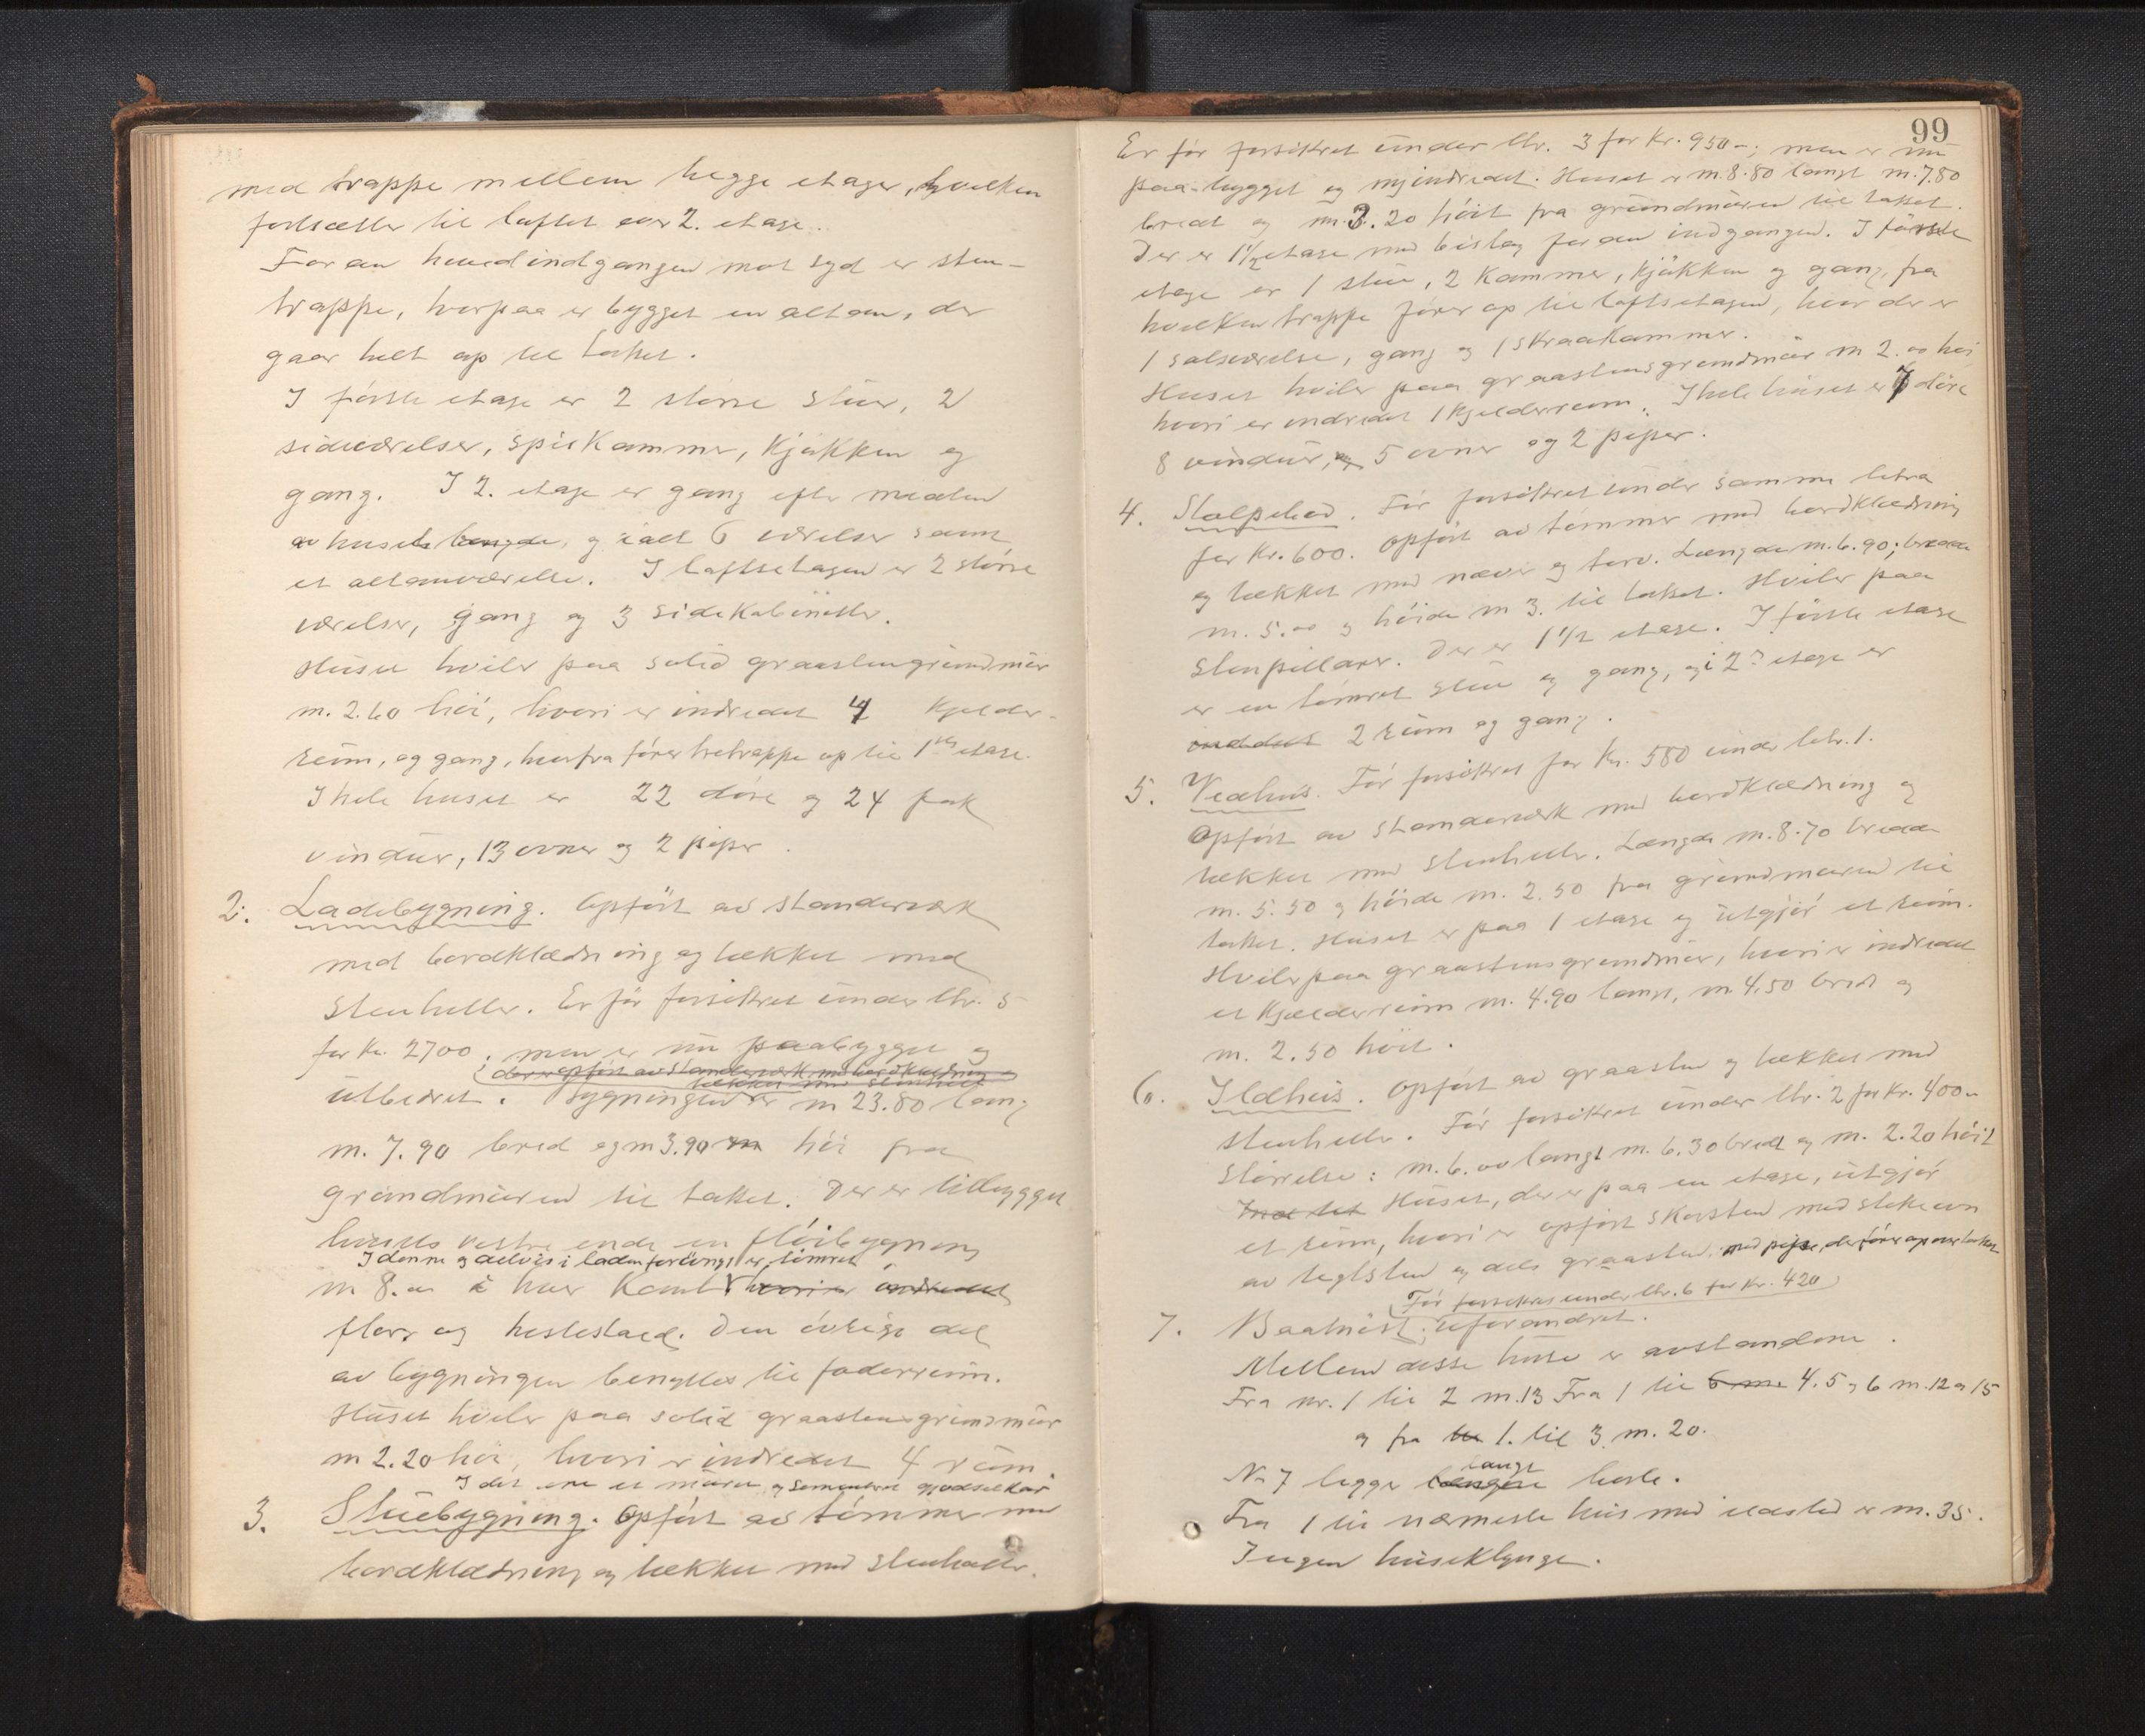 med trappe mellem begge etager, hvilken
fortsætter til loftet over 2. etage.
Foran hovedindgangen mot syd er sten-
trappe, hvorpaa er bygget en altan, der
gaar helt op til taket.
I første etage er 2 større stuer, 2
sideværelser, spiskammer, kjøkken og
gang. I 2. etage er gang efter midten
av husets længde, og ialt 6 værelser samt
et altanværelse. I loftsetagen er 2 større
værelser, gang og 3 sidekabinetter.
Huset hviler paa solid graastengrundmur
m. 2.60 høi, hvori er indredet 4 kjelder-
rum, og gang, hvorfra fører tretrappe op til 1ste etage.
I hele huset er 22 døre og 24 fak
vinduer, 13 ovner og 2 piper.
2. Ladebygning. Opført av standerverk
med bordklædning og tækket med
stenheller. Er før forsikret under litr. 5
for kr. 2700, men er nu paabygget og
der er opført av standerverk med bordklædning og
tækket med stenheller
utbedret. Bygningen er m 23.80 lang
m. 7.90 bred og m 3.90 høi fra
grundmuren til taket. Der er tilbygget
husets vestre ende en fløibygning
I denne og delvis i laden forøvrigt er tømret
m 8.00 i hver kant hvori er indredet
flor og hestestald. Den øvrige del
av bygningen benyttes til foderrum.
Huset hviler paa solid graastensgrundmur
m 2.20 høi, hvori er indredet 4 rum.
I det ene et muret og sementeret gjødselkar
3. Stuebygning. Opført av tømmer med
bordklædning og tækket med stenheller.
99
Er før forsikret under litr. 3 for kr. 950-; men er nu
paa-bygget og nyindredet. Huset er m. 8.80 langt m. 7.80
bredt og m. 3.20 høit fra grundmuren til taket.
Der er 1½ etage med bislag foran indgangen. I første
etage er 1 stue, 2 kammer, kjøkken og gang, fra
hvilken trappe fører op til loftsetagen, hvor der er
1 salsværelse, gang og 1 skraakammer.
Huset hviler paa graastensgrundmur m 2.00 høi
hvori er indredet 1 kjelderrum. I hele huset er 7 døre
8 vinduer, og 5 ovner og 2 piper.
4. Stolpebod. Før forsikret under samme litra
for kr. 600. Opført av tømmer med bordklædning
og tækket med næver og torv. Længde m. 6.90; bredde
m. 5.00 og høide m 3. til taket. Hviler paa
stenpillarer. Der er 1 1/2 etage. I første etage
er en tømret stue og gang, og i 2den etage er
2 rum og gang.
5. Vedhus. Før forsikret for kr. 580 under litr. 1.
Opført av standerværk med bordklædning og
tækket med stenheller. Længde m. 8.70 bredde
m. 5.50 og høide m. 2.50 fra grundmuren til
taket. Huset er paa 1 etage og utgjør et rum.
Hviler paa graastensgrundmur, hvori er indredet
et kjælderrum m. 4.90 langt, m. 4.50 bredt og
m. 2.50 høit.
6. Ildhus. Opført av graasten og tækket med
stenheller. Før forsikret under litr. 2 for kr. 400-
Størrelse: m. 6.00 langt m. 6.30 bredt og m. 2.20 høit
Huset, der er paa en etage, utgjør
et rum, hvori er opført skorsten med stekeovn
av teglsten og dels graasten med pipe, der fører op over taket.
Før forsikret under litr. 6 for kr. 420
7. Baatnøst; uforandret.
Mellem disse huse er avstandene.
Fra nr. 1 til 2 m. 13 Fra 1 til 6 m. 4. 5 og 6 m. 12 og 15
og fra 1. til 3. m. 20.
langt
No 7 ligger længere borte.
Fra 1 til nærmeste hus med ildsted er m. 35.
Ingen huseklynge.